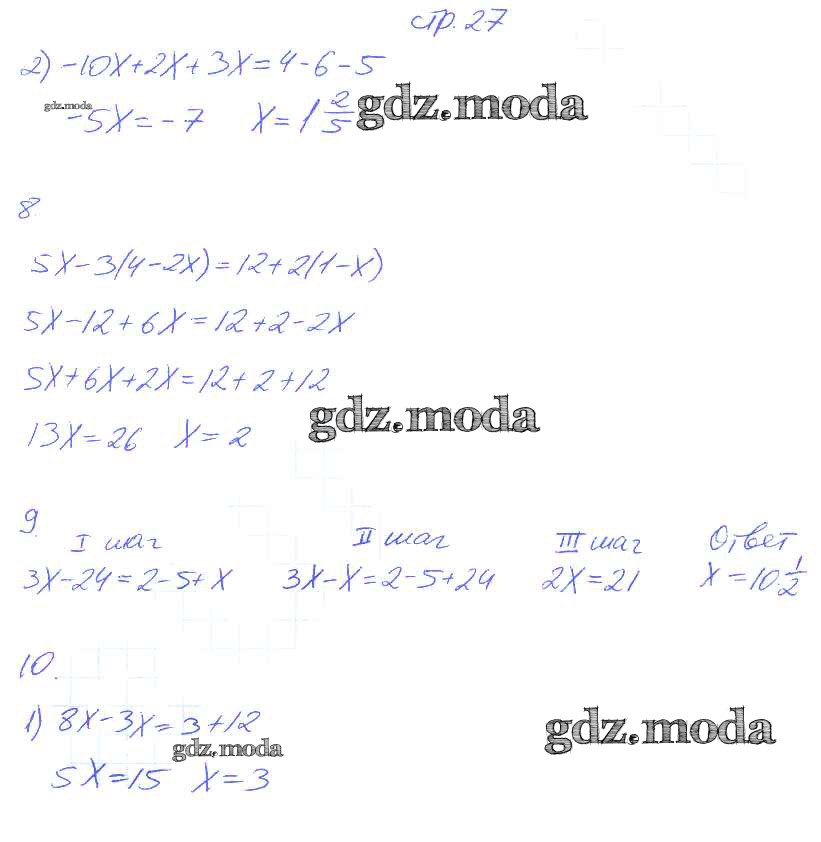 стр. 27
2) -10x+2x+3x=4-6-5
gdz.moda
-5x=-7 x=1 2/5
gdz.moda
8.
5x-3(4-2x)=12+2(1-x)
5x-12+6x=12+2-2x
5x+6x+2x=12+2+12
gdz.moda
13x=26 x=2
9.
I шаг II шаг III шаг Ответ
3x-24=2-5+x 3x-x=2-5+24 2x=21 x=10 1/2
10.
1) 8x-3x=3+12
gdz.moda
gdz.moda
5x=15 x=3